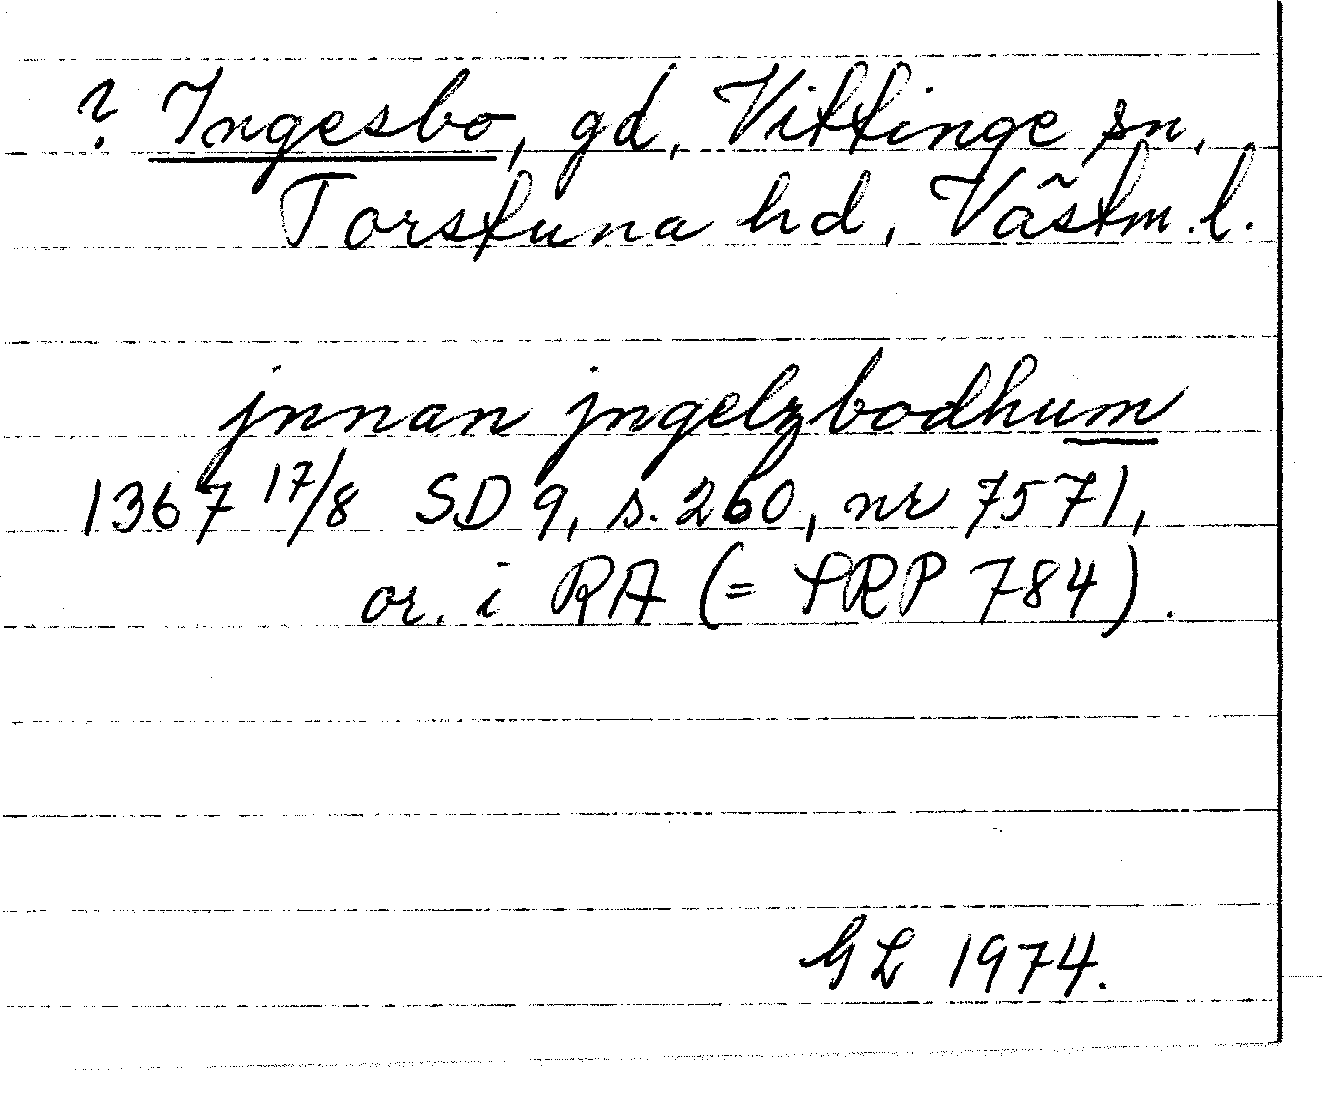 ? Ingesbo, gd, Vittinge sn,
Torstuna hd, Västm. l.
jnnan jngelzbodhum
1367 17/8 SD 9, s. 260, nr 7571,
or. i RA (= SRP 784).
GL 1974.